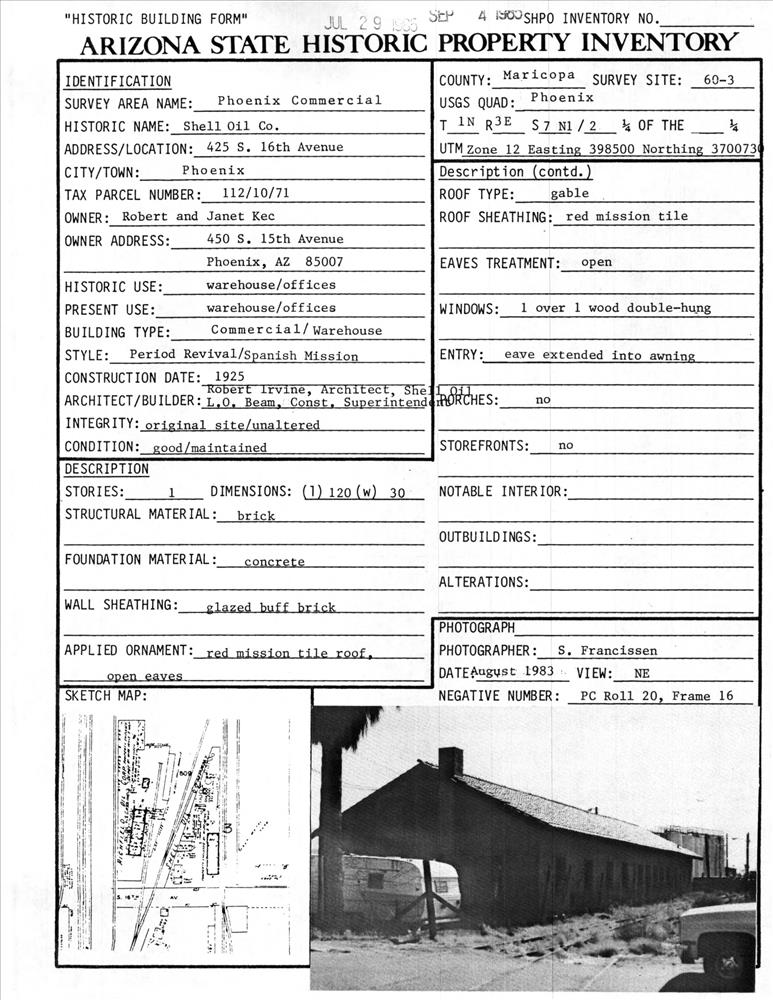 "HISTORIC BUILDING FORM"
JUL 29 1985
SEP 4 1985
SHPO INVENTORY NO.
ARIZONA STATE HISTORIC PROPERTY INVENTORY
IDENTIFICATION
SURVEY AREA NAME: Phoenix Commercial
HISTORIC NAME: Shell Oil Co.
ADDRESS/LOCATION: 425 S. 16th Avenue
CITY/TOWN: Phoenix
TAX PARCEL NUMBER: 112/10/71
OWNER: Robert and Janet Kec
OWNER ADDRESS: 450 S. 15th Avenue
Phoenix, AZ 85007
HISTORIC USE: warehouse/offices
PRESENT USE: warehouse/offices
BUILDING TYPE: Commercial/Warehouse
STYLE: Period Revival/Spanish Mission
CONSTRUCTION DATE: 1925
Robert Irvine, Architect, Shell Oil
ARCHITECT/BUILDER: L.O. Beam, Const. Superintendent
INTEGRITY: original site/unaltered
CONDITION: good/maintained
COUNTY: Maricopa SURVEY SITE: 60-3
USGS QUAD: Phoenix
T 1N R 3E S 7 N1/2 ¼ OF THE ¼
UTM Zone 12 Easting 398500 Northing 3700730
Description (contd.)
ROOF TYPE: gable
ROOF SHEATHING: red mission tile
EAVES TREATMENT: open
WINDOWS: 1 over 1 wood double-hung
ENTRY: eave extended into awning
PORCHES: no
STOREFRONTS: no
NOTABLE INTERIOR:
OUTBUILDINGS:
ALTERATIONS:
DESCRIPTION
STORIES: 1 DIMENSIONS: (l) 120 (w) 30
STRUCTURAL MATERIAL: brick
FOUNDATION MATERIAL: concrete
WALL SHEATHING: glazed buff brick
APPLIED ORNAMENT: red mission tile roof,
open eaves
PHOTOGRAPH
PHOTOGRAPHER: S. Francissen
DATE: August 1983 VIEW: NE
NEGATIVE NUMBER: PC Roll 20, Frame 16
SKETCH MAP:
509
S. 16TH AV